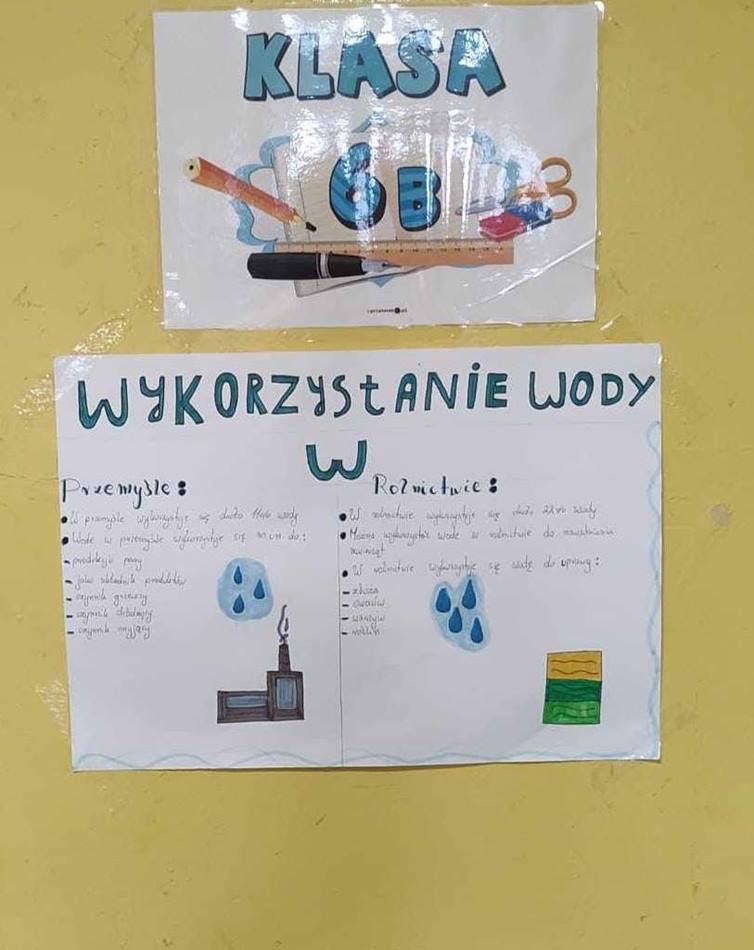 KLASA
6 B
WYKORZYSTANIE WODY
W
Przemyśle:
• W przemyśle wykorzystuje się dużo 11% wody
• Wodę w przemyśle wykorzystuje się m.in. do:
- produkcji pary
- jako składnik produktów
- czynnik grzewczy
- czynnik chłodzący
- czynnik myjący
Rolnictwie:
• W rolnictwie wykorzystuje się 22% wody
• Można wykorzystać wodę w rolnictwie do nawadniania
zwierząt
• W rolnictwie wykorzystuje się wodę do uprawy:
- zboża
- owoców
- warzyw
- roślin